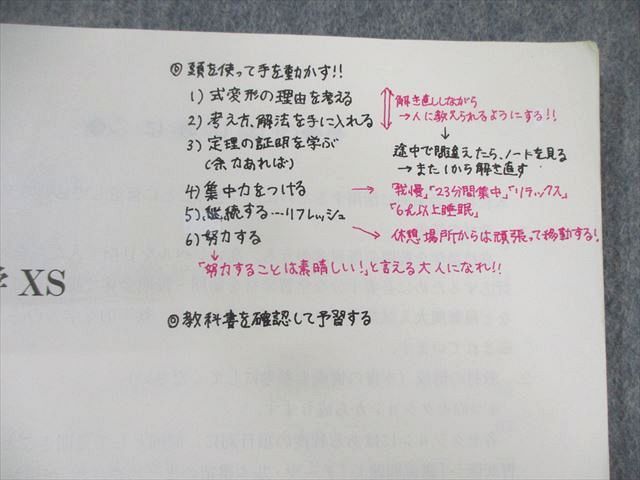 ◎ 頭を使って手を動かす!!
1) 式変形の理由を考える
2) 考え方、解法を手に入れる
3) 定理の証明を学ぶ
(余力あれば)
解き直ししながら
→人に教えられるようにする!!
↓
途中で間違えたら、ノートを見る
→また1から解き直す
4) 集中力をつける → 「我慢」「23分間集中」「リラックス」
「6h以上睡眠」
5) 継続する…リフレッシュ
6) 努力する
→ 休憩場所からは頑張って移動する!
↓
「努力することは素晴しい!」と言える大人になれ!!
学 XS
◎ 教科書を確認して予習する